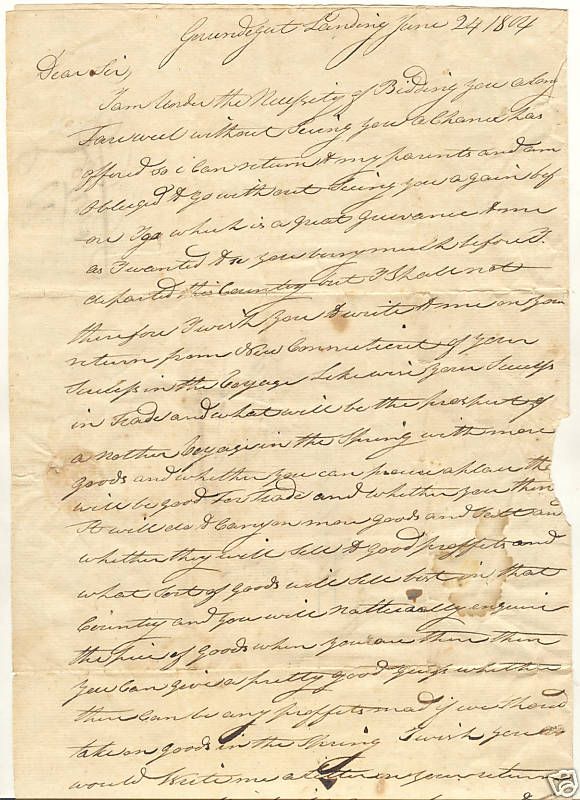 Landing June 24 1804
Dear Sir,
I am Under the Necessity of Bidding you a long
Farewell without Seeing you a Chance has
offered so i can return to my parents and am
obleeged to go without Seeing you again bef
ore I go which is a great greivance to me
as I wanted to se you very much before I
departed this Country but I Shall not
therefore I wish you to write to me on your
return from New Connecticut of your
Suckess in the Voyage Likewise your Suckess
in Trade and what will be the prospect of
a nother Voyage in the Spring with more
goods and whether you can procure a place that
will be good for trade and whether you think
it will do to Carry on more goods and Sell and
whether they will Sell to good proffets and
what Sort of goods will Sell best in that
Country and you will natteraly enquire
the price of goods when you are there then
you can give a pretty good guess whether
there can be any proffets mad if we Should
take on goods in the Spring I wish you
would Write me a letter on your return